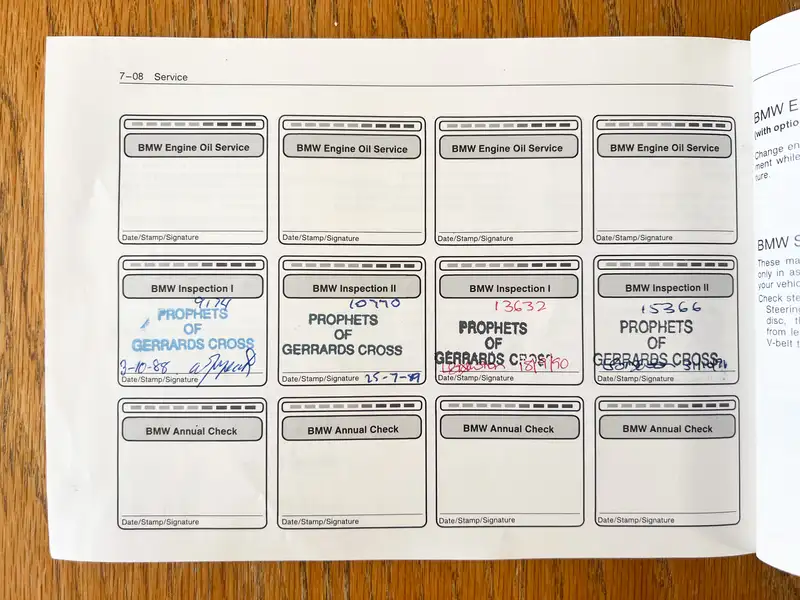 7–08 Service
BMW Engine Oil Service
Date/Stamp/Signature
BMW Engine Oil Service
Date/Stamp/Signature
BMW Engine Oil Service
Date/Stamp/Signature
BMW Engine Oil Service
Date/Stamp/Signature
BMW Inspection I
9174
PROPHETS
OF
GERRARDS CROSS
3-10-88
Date/Stamp/Signature
BMW Inspection II
10770
PROPHETS
OF
GERRARDS CROSS
25-7-89
Date/Stamp/Signature
BMW Inspection I
13632
PROPHETS
OF
GERRARDS CROSS
18/9/90
Date/Stamp/Signature
BMW Inspection II
15366
PROPHETS
OF
GERRARDS CROSS
Date/Stamp/Signature
BMW Annual Check
Date/Stamp/Signature
BMW Annual Check
Date/Stamp/Signature
BMW Annual Check
Date/Stamp/Signature
BMW Annual Check
Date/Stamp/Signature
BMW E
(with optio
Change en
ment while
ture.
BMW S
These ma
only in as
your vehic
Check ste
Steering
disc, th
from le
V-belt t